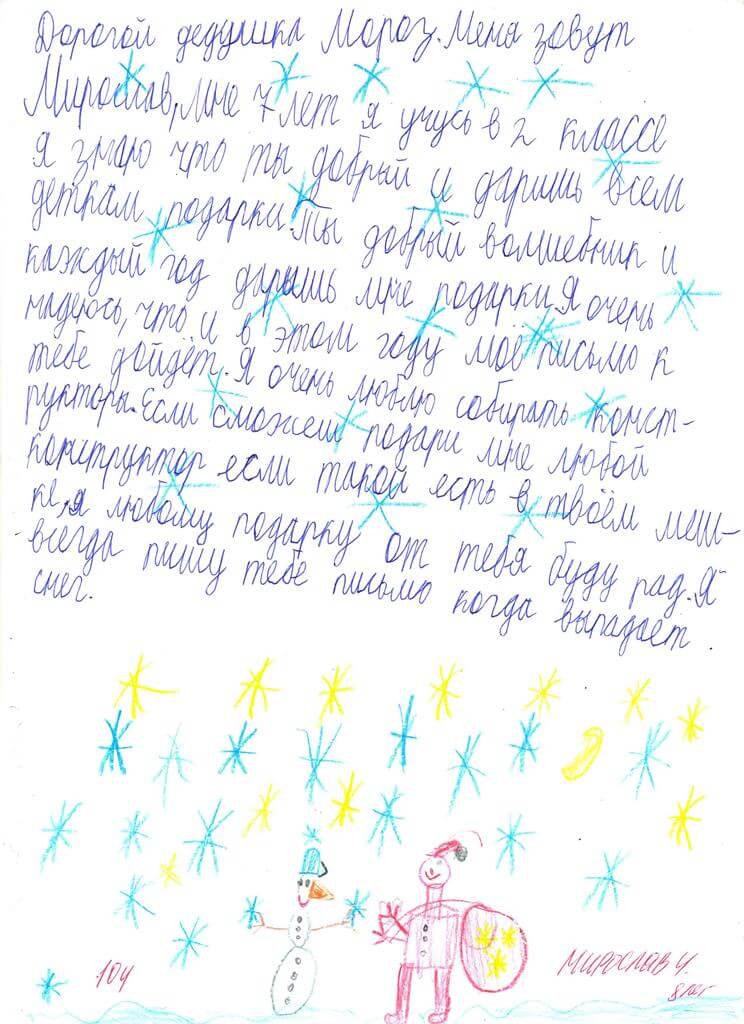 Дорогой дедушка Мороз. Меня зовут
Мирослав, мне 7 лет я учусь в 2 классе
я знаю что ты добрый и даришь всем
деткам подарки. Ты добрый волшебник и
каждый год даришь мне подарки. Я очень
надеюсь, что и в этом году моё письмо к
тебе дойдёт. Я очень люблю собирать конст-
рукторы. Если сможеш подари мне любой
конструктор если такой есть в твоём меш-
ке, я любому подарку от тебя буду рад. Я
всегда пишу тебе письмо когда выпадает
снег.
104
Мирослав Ч.
8 лет